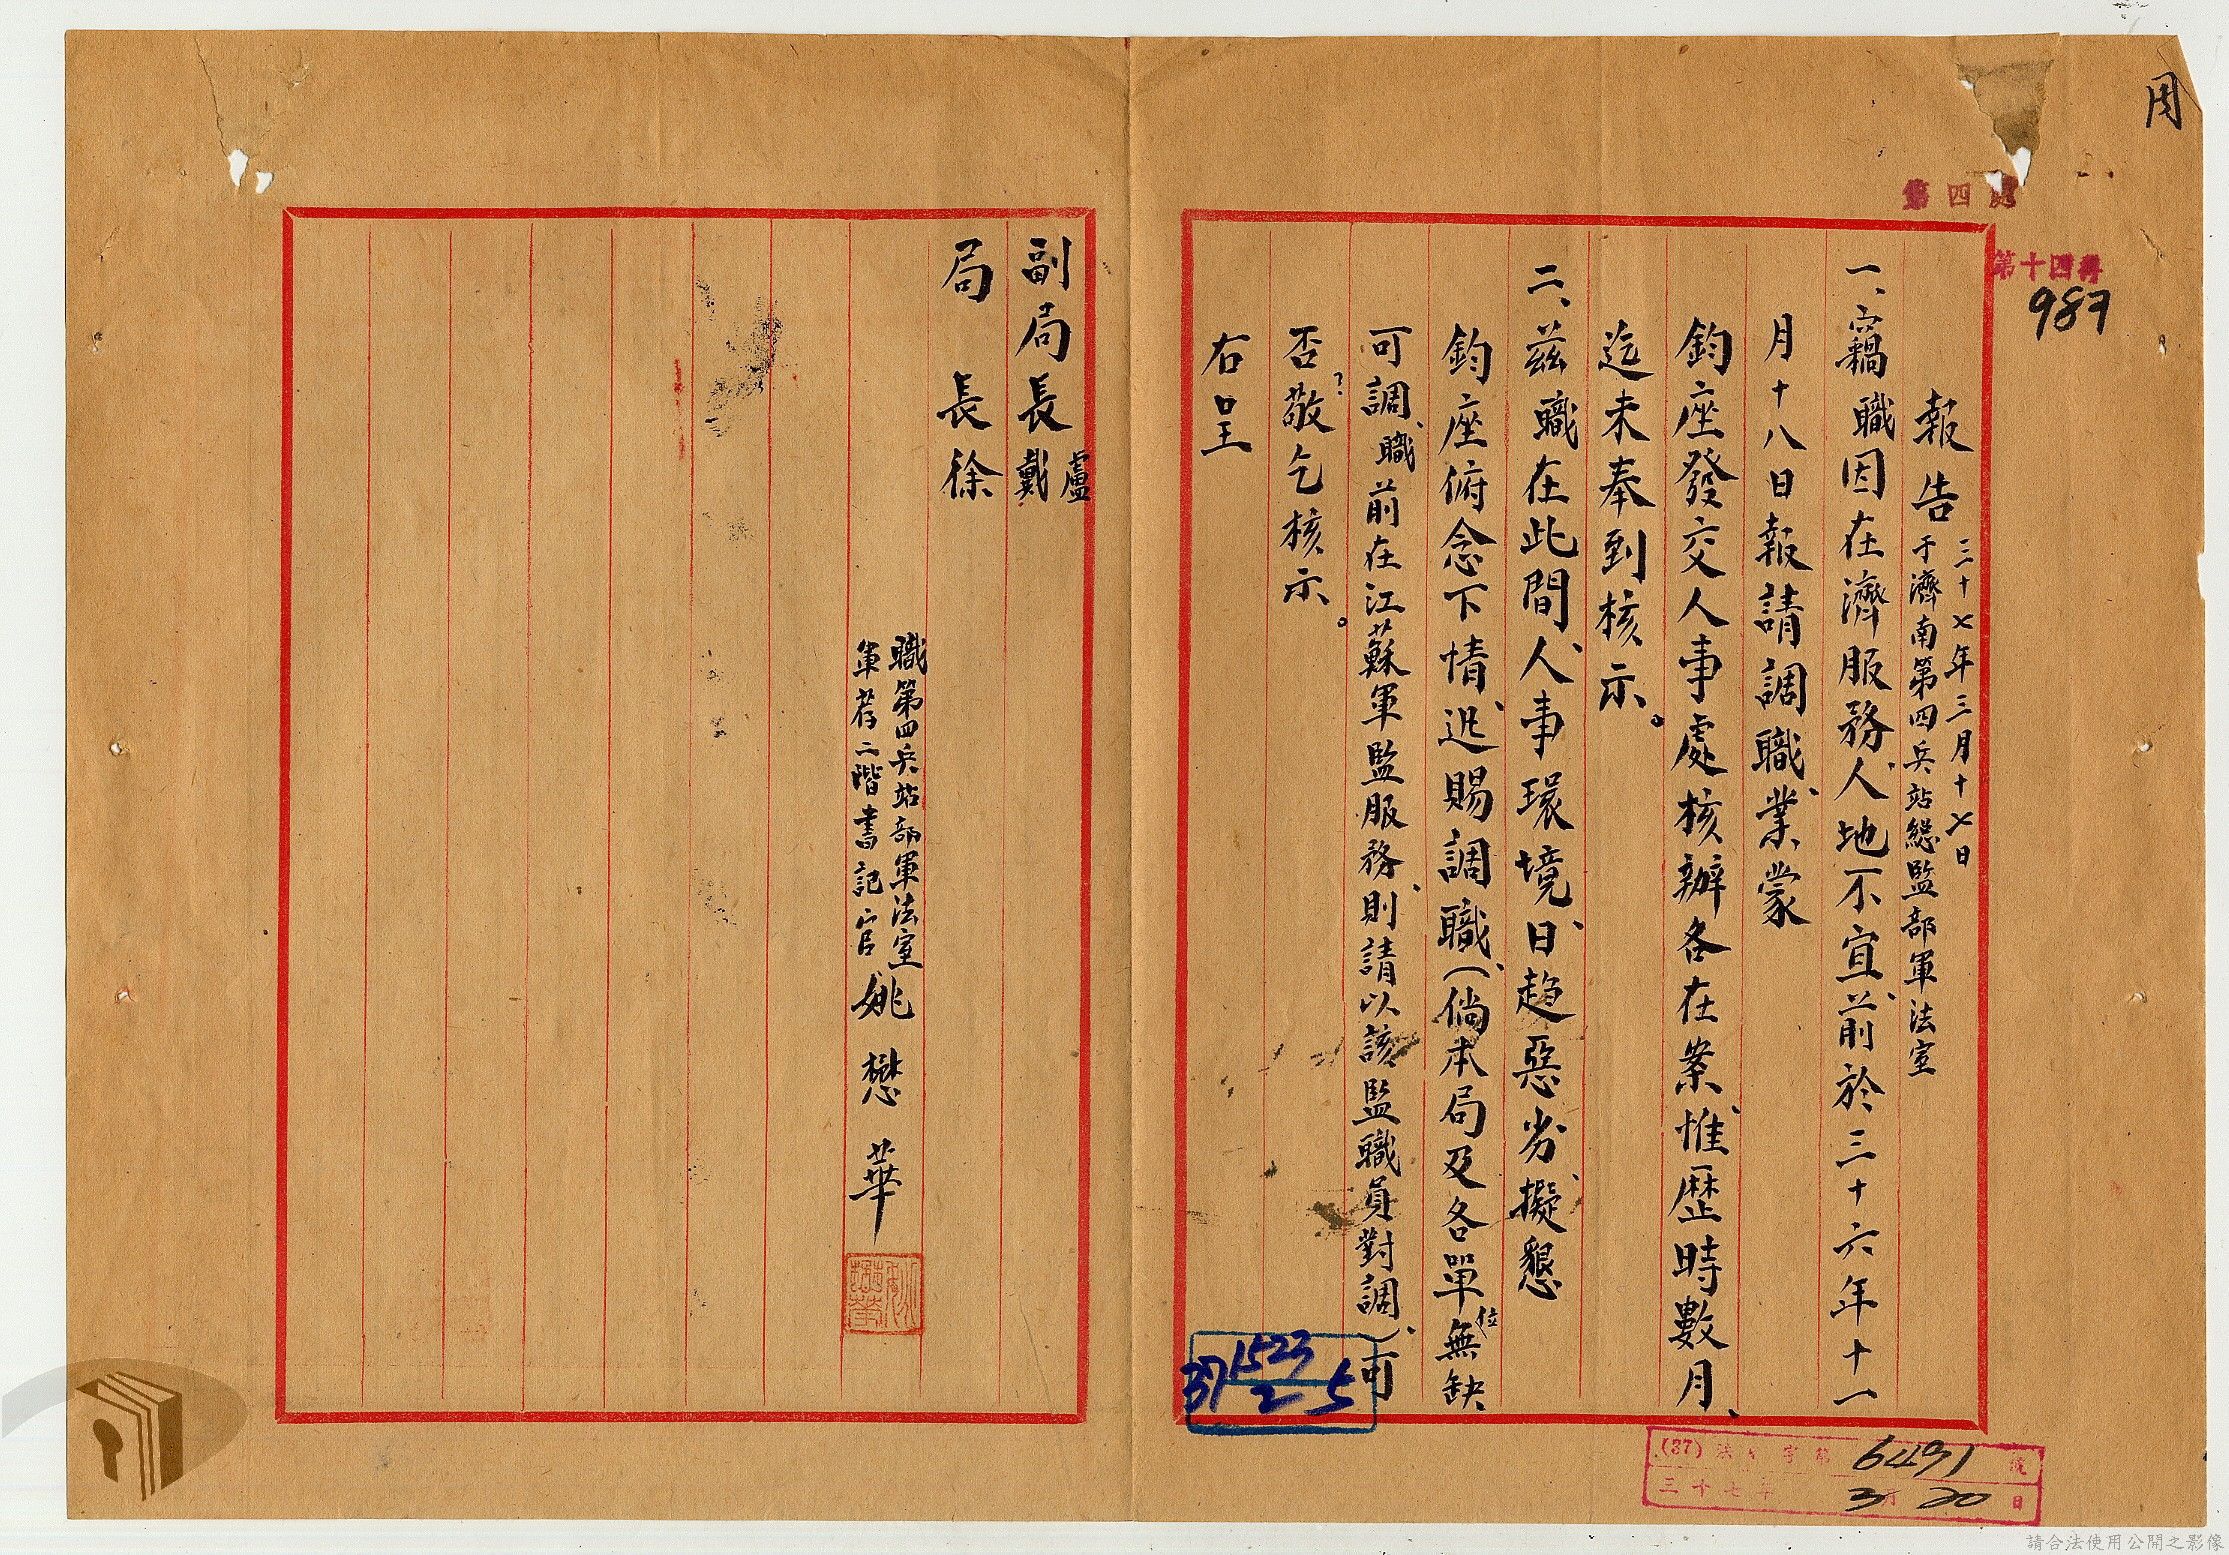 用
第四處
第十四科
987
報告 三十七年三月十七日
于濟南第四兵站總監部軍法室
一、竊職因在濟服務、人地不宜、前於三十六年十一
月十八日報請調職、業蒙
鈞座發交人事處核辦各在案、惟歷時數月、
迄未奉到核示。
二、茲職在此間、人事環境、日趨惡劣、擬懇
鈞座俯念下情、迅賜調職、(倘本局及各單位無缺
可調、職前在江蘇軍監服務、則請以該監職員對調、)可
否?敬乞核示。
右呈
副局長 盧 戴
局長徐
職第四兵站部軍法室
軍荐二階書記官 姚懋華
1523
37 2 5
(37)法 字第6491號
三十七年3月20日
請合法使用公開之影像